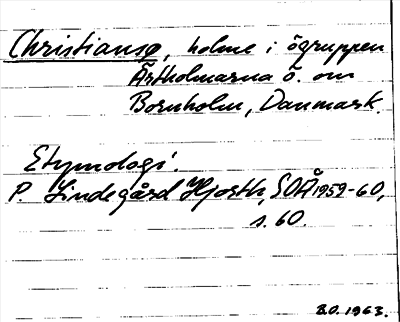 Christiansø, holme i ögruppen
Ärtholmarna ö. om
Bornholm, Danmark.
Etymologi.
P. Lindegård Hjorth, SOÅ 1959-60,
s. 60.
B.O. 1963.